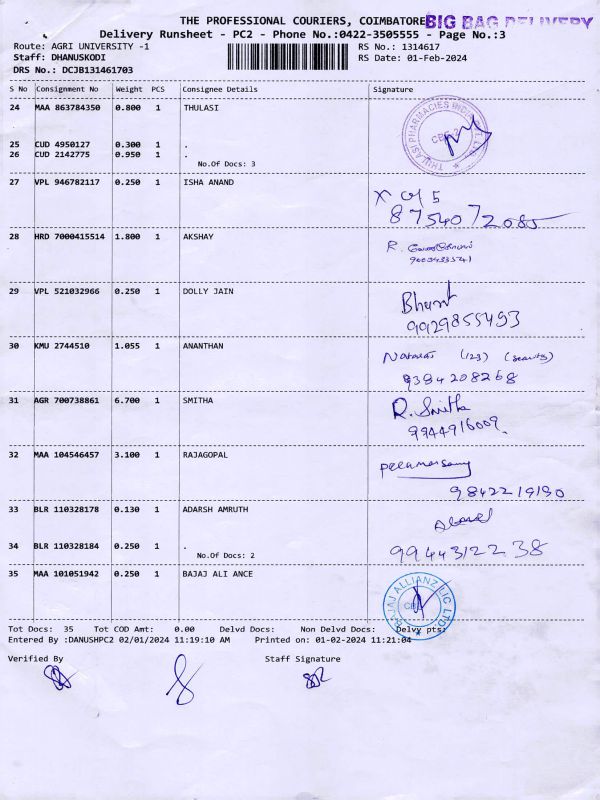 THE PROFESSIONAL COURIERS, COIMBATORE BIG BAG DELIVERY
Delivery Runsheet - PC2 - Phone No.:0422-3505555 - Page No.:3
Route: AGRI UNIVERSITY -1
RS No.: 1314617
Staff: DHANUSKODI
RS Date: 01-Feb-2024
DRS No.: DCJB131461703
S No Consignment No Weight PCS Consignee Details Signature
24 MAA 863784350 0.800 1 THULASI
THULASI PHARMACIES INDIA PVT. LTD.
CBE-2
25 CUD 4950127 0.300 1 .
26 CUD 2142775 0.950 1 .
No.Of Docs: 3
27 VPL 946782117 0.250 1 ISHA ANAND
8754072085
28 HRD 7000415514 1.800 1 AKSHAY
R.
29 VPL 521032966 0.250 1 DOLLY JAIN
9929855493
30 KMU 2744510 1.055 1 ANANTHAN
(123) (security)
9394208268
31 AGR 700738861 6.700 1 SMITHA
R. Smitha
9944916009.
32 MAA 104546457 3.100 1 RAJAGOPAL
9842219190
33 BLR 110328178 0.130 1 ADARSH AMRUTH
34 BLR 110328184 0.250 1 .
9944312238
No.Of Docs: 2
35 MAA 101051942 0.250 1 BAJAJ ALI ANCE
BAJAJ ALLIANZ LIC LTD.
Tot Docs: 35 Tot COD Amt: 0.00 Delvd Docs: Non Delvd Docs: Delvy pts:
Entered By :DANUSHPC2 02/01/2024 11:19:10 AM Printed on: 01-02-2024 11:21:04
Verified By Staff Signature